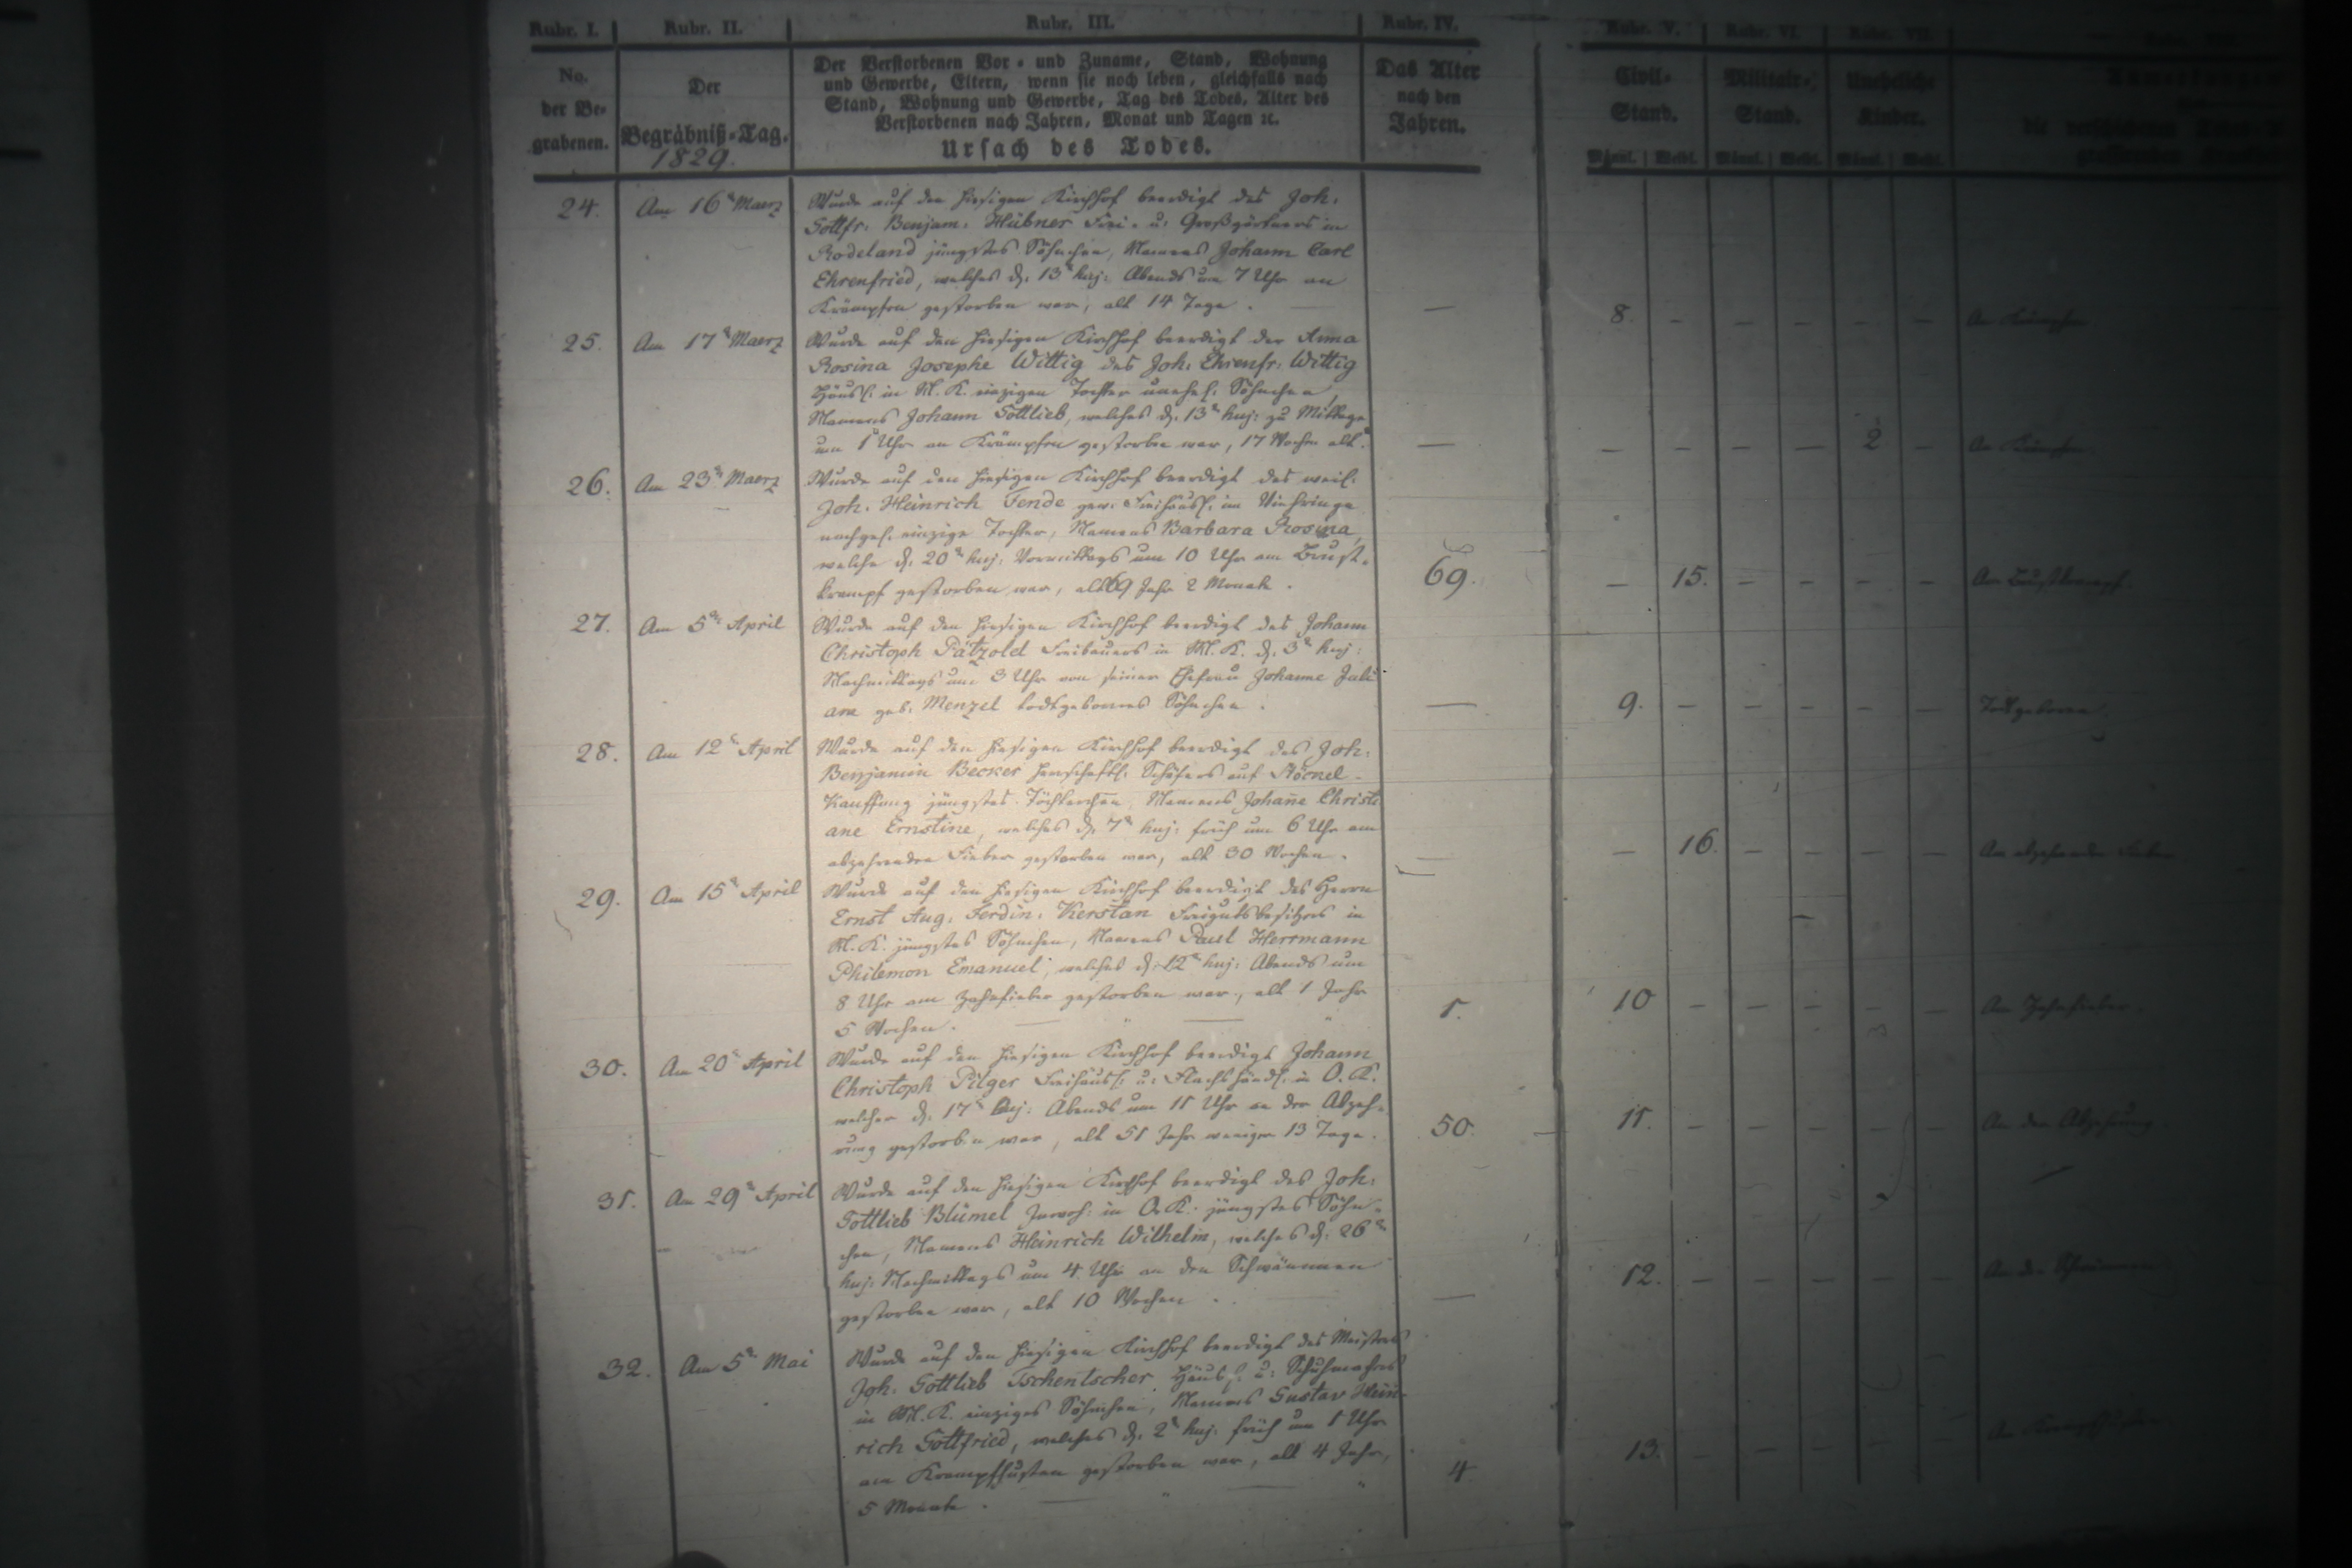 Rubr. I. Rubr. II. Rubr. III. Rubr. IV. Rubr. V. Rubr. VI. Rubr. VII.
No. der Be- grabenen.
Der Begräbniß-Tag.
1829.
Der Verstorbenen Vor- und Zuname, Stand, Wohnung
und Gewerbe, Eltern, wenn sie noch leben, gleichfalls nach
Stand, Wohnung und Gewerbe, Tag des Todes, Alter des
Verstorbenen nach Jahren, Monat und Tagen ꝛc.
Ursach des Todes.
Das Alter
nach den
Jahren.
Civil-
Stand.
Militair-
Stand.
Uneheliche
Kinder.
Männl. Weibl. Männl. Weibl. Männl. Weibl.
24. Am 16n Maerz Wurde auf den hiesigen Kirchhof beerdigt des Joh:
Gottfr: Benjam: Hübner Frei- u: Großgärtners in
Rodeland jüngstes Söhnchen, Namens Johann Carl
Ehrenfried, welches d. 13n huj: Abends um 7 Uhr an
Krämpfen gestorben war, alt 14 Tage. — 8. — — — — — An Krämpfen
25. Am 17n Maerz Wurde auf den hiesigen Kirchhof beerdigt der Anna
Rosina Josephe Wittig des Joh: Ehrenfr: Wittig
Häusl: in M. K. einzigen Tochter unehel: Söhnchen,
Namens Johann Gottlieb, welches d. 13n huj: zu Mittage
um 1 Uhr an Krämpfen gestorben war, 17 Wochen alt. — — — — — 2 — An Krämpfen
26. Am 23n Maerz Wurde auf den hiesigen Kirchhof beerdigt des weil:
Joh. Heinrich Fende gew: Freihäusl: im Viehringe
nachgel. einzige Tochter, Namens Barbara Rosina,
welche d. 20n huj: Vormittags um 10 Uhr am Brust-
krampf gestorben war, alt 69 Jahr 2 Monate. 69. — 15. — — — — Am Brustkrampf.
27. Am 5n April Wurde auf den hiesigen Kirchhof beerdigt des Johann
Christoph Pätzold Freibauers in M. K. d. 3n huj:
Nachmittags um 3 Uhr von seiner Ehefrau Johanne Juli
ane geb: Menzel todtgebornes Söhnchen. — 9. — — — — — Todtgeboren.
28. Am 12n April Wurde auf den hiesigen Kirchhof beerdigt des Joh:
Benjamin Becker herrschaftl: Schäfers auf Stöckel-
Kauffung jüngstes Töchterchen, Namens Johañe Christi
ane Ernstine, welches d. 7n huj: früh um 6 Uhr am
abzehrenden Fieber gestorben war, alt 30 Wochen. — — 16. — — — — Am abzehrenden Fieber
29. Am 15n April Wurde auf den hiesigen Kirchhof beerdigt des Herrn
Ernst Aug: Ferdin: Kerstan Freigutsbesitzers in
M. K. jüngstes Söhnchen, Namens Paul Herrmann
Philemon Emanuel, welches d. 12n huj: Abends um
8 Uhr am Zahnfieber gestorben war, alt 1 Jahr
5 Wochen. 1. 10 — — — — — Am Zahnfieber.
30. Am 20n April Wurde auf den hiesigen Kirchhof beerdigt Johann
Christoph Pilger Freihäusl: u: Flachshändl: in O. K.
welcher d. 17n huj: Abends um 11 Uhr an der Abzeh-
rung gestorben war, alt 51 Jahr weniger 13 Tage. 50. 11. — — — — — An der Abzehrung
31. Am 29n April Wurde auf den hiesigen Kirchhof beerdigt des Joh:
Gottlieb Blümel Inwoh: in O. K. jüngstes Söhn-
chen, Namens Heinrich Wilhelm, welches d. 26n
huj: Nachmittags um 4 Uhr an den Schwämmen
gestorben war, alt 10 Wochen. — 12. — — — — — An den Schwämmen
32. Am 5n Mai Wurde auf den hiesigen Kirchhof beerdigt des Meisters
Joh: Gottlieb Tschentscher Häusl: u: Schuhmachers
in M. K. einziges Söhnchen, Namens Gustav Hein-
rich Gottfried, welches d. 2n huj: früh um 1 Uhr
am Krampfhusten gestorben war, alt 4 Jahr,
5 Monate. 4 13. — — — —